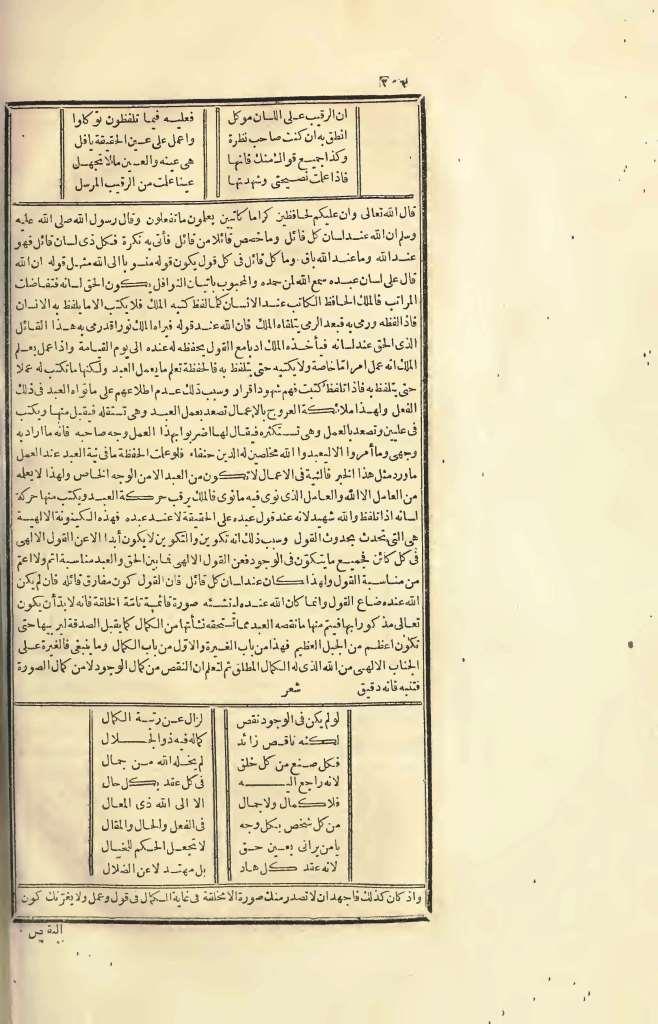 ٣٠٣
ان الرقيب على اللسان موكل فعليه فيما تلفظون توكلوا
انطق به ان كنت صاحب نظرة واعمل على عين الحقيقة يافل
وكذا جميع قوالك منك فانها هى عينه والعين مالا تجهل
فاذا علمت نصيحتى وشهدتها عينا علمت من الرقيب المرسل
قال الله تعالى وان عليكم لحافظين كراما كاتبين يعلمون ما تفعلون وقال رسول الله صلى الله عليه
وسلم ان الله عند لسان كل قائل وما خصص قائلا من قائل فأتى به نكرة فكل ذى لسان قائل فهو
عند الله وما عند الله باق وما كل قائل فى كل قول يكون قوله منسوبا الى الله مثل قوله ان الله
قال على لسان عبده سمع الله لمن حمده والمحبوب باتيان النوافل يكون الحق لسانه فتفاضلت
المراتب فالملك الحافظ الكاتب عند الانسان كلما لفظ كتبه الملك فلا يكتب الا ما يلفظ به الانسان
فاذا لفظه ورمى به فبعد الرمى يتلقاه الملك فان الله عند قوله فيراه الملك نورا قد رمى به هذا القائل
الذى الحق عند لسانه فيأخذه الملك ادبا مع القول يحفظه له عنده الى يوم القيامة واذا عمل يعلم
الملك انه عمل امرا ما خاصة ولا يكتبه حتى يتلفظ به فالحفظة تعلم ما يعمل العبد ولكنها ما تكتب له عملا
حتى يتلفظ به فاذا تلفظ كتبت فهم شهود اقرار وسبب ذلك عدم اطلاعهم على ما نواه العبد فى ذلك
الفعل ولهذا ملائكة العروج بالاعمال تصعد بعمل العبد وهى تستقله فيقبل منها ويكتب
فى عليين وتصعد بالعمل وهى تستكثره فيقال لها اضربوا بهذا العمل وجه صاحبه فانه ما اراد به
وجهى وما أمروا الا ليعبدوا الله مخلصين له الدين حنفاء فلو علمت الحفظة ما فى نية العبد عند العمل
ما ورد مثل هذا الخبر فالنية فى الاعمال لا تكون من العبد الا من الوجه الخاص ولهذا لا يعلمه
من العامل الا الله والعامل الذى نوى فيه ما نوى فالملك يرقب حركة العبد ويكتب منها حركة
لسانه اذا تلفظ والله شهيد لانه عند قول عبده على الحقيقة لا عند عبده فهذه الكينونة الالهية
هى التى تحدث بحدوث القول وسبب ذلك انه تكوين والتكوين لا يكون أبدا الا عن القول الالهى
فى كل كائن فجميع ما يتكون فى الوجود فعن القول الالهى فما بين الحق والعبد مناسبة اتم ولا اعم
من مناسبة القول ولهذا كان عند لسان كل قائل فان القول كون مفارق قائله فان لم يكن
الله عنده ضاع القول وانما كان الله عنده لينشئه صورة قائمة تامة الخلقة فانه لا بد أن يكون
تعالى مذكورا بها فيتم منها ما نقصه العبد مما تستحقه نشأتها من الكمال كما يقبل الصدقة ليربيها حتى
تكون اعظم من الجبل العظيم فهذا من باب الغيرة والاول من باب الكمال وما ينبغى فالغيرة على
الجناب الالهى من الله الذى له الكمال المطلق ثم لتعلم ان النقص من كمال الوجود لا من كمال الصورة
فتنبه فانه دقيق شعر
لو لم يكن فى الوجود نقص لزال عن رتبة الكمال
لكنه ناقص زائد كماله فيه ذو الجلال
فكل صنع من كل خلق لم يخله الله من جمال
لانه راجع اليه فى كل عقد بكل حال
فلا كمال ولا جمال الا الى الله ذى المعال
من كل شخص بكل وجه فى الفعل والحال والمقال
يا من يرانى بعين حق لا تجعل الحكم للخيال
لانه عقد كل هاد بل مهتد لا عن الضلال
واذ كان كذلك فاجهد ان لا تصدر منك صورة الا مخلقة فى غاية الكمال فى قول وعمل ولا يغرنك كون
النقص